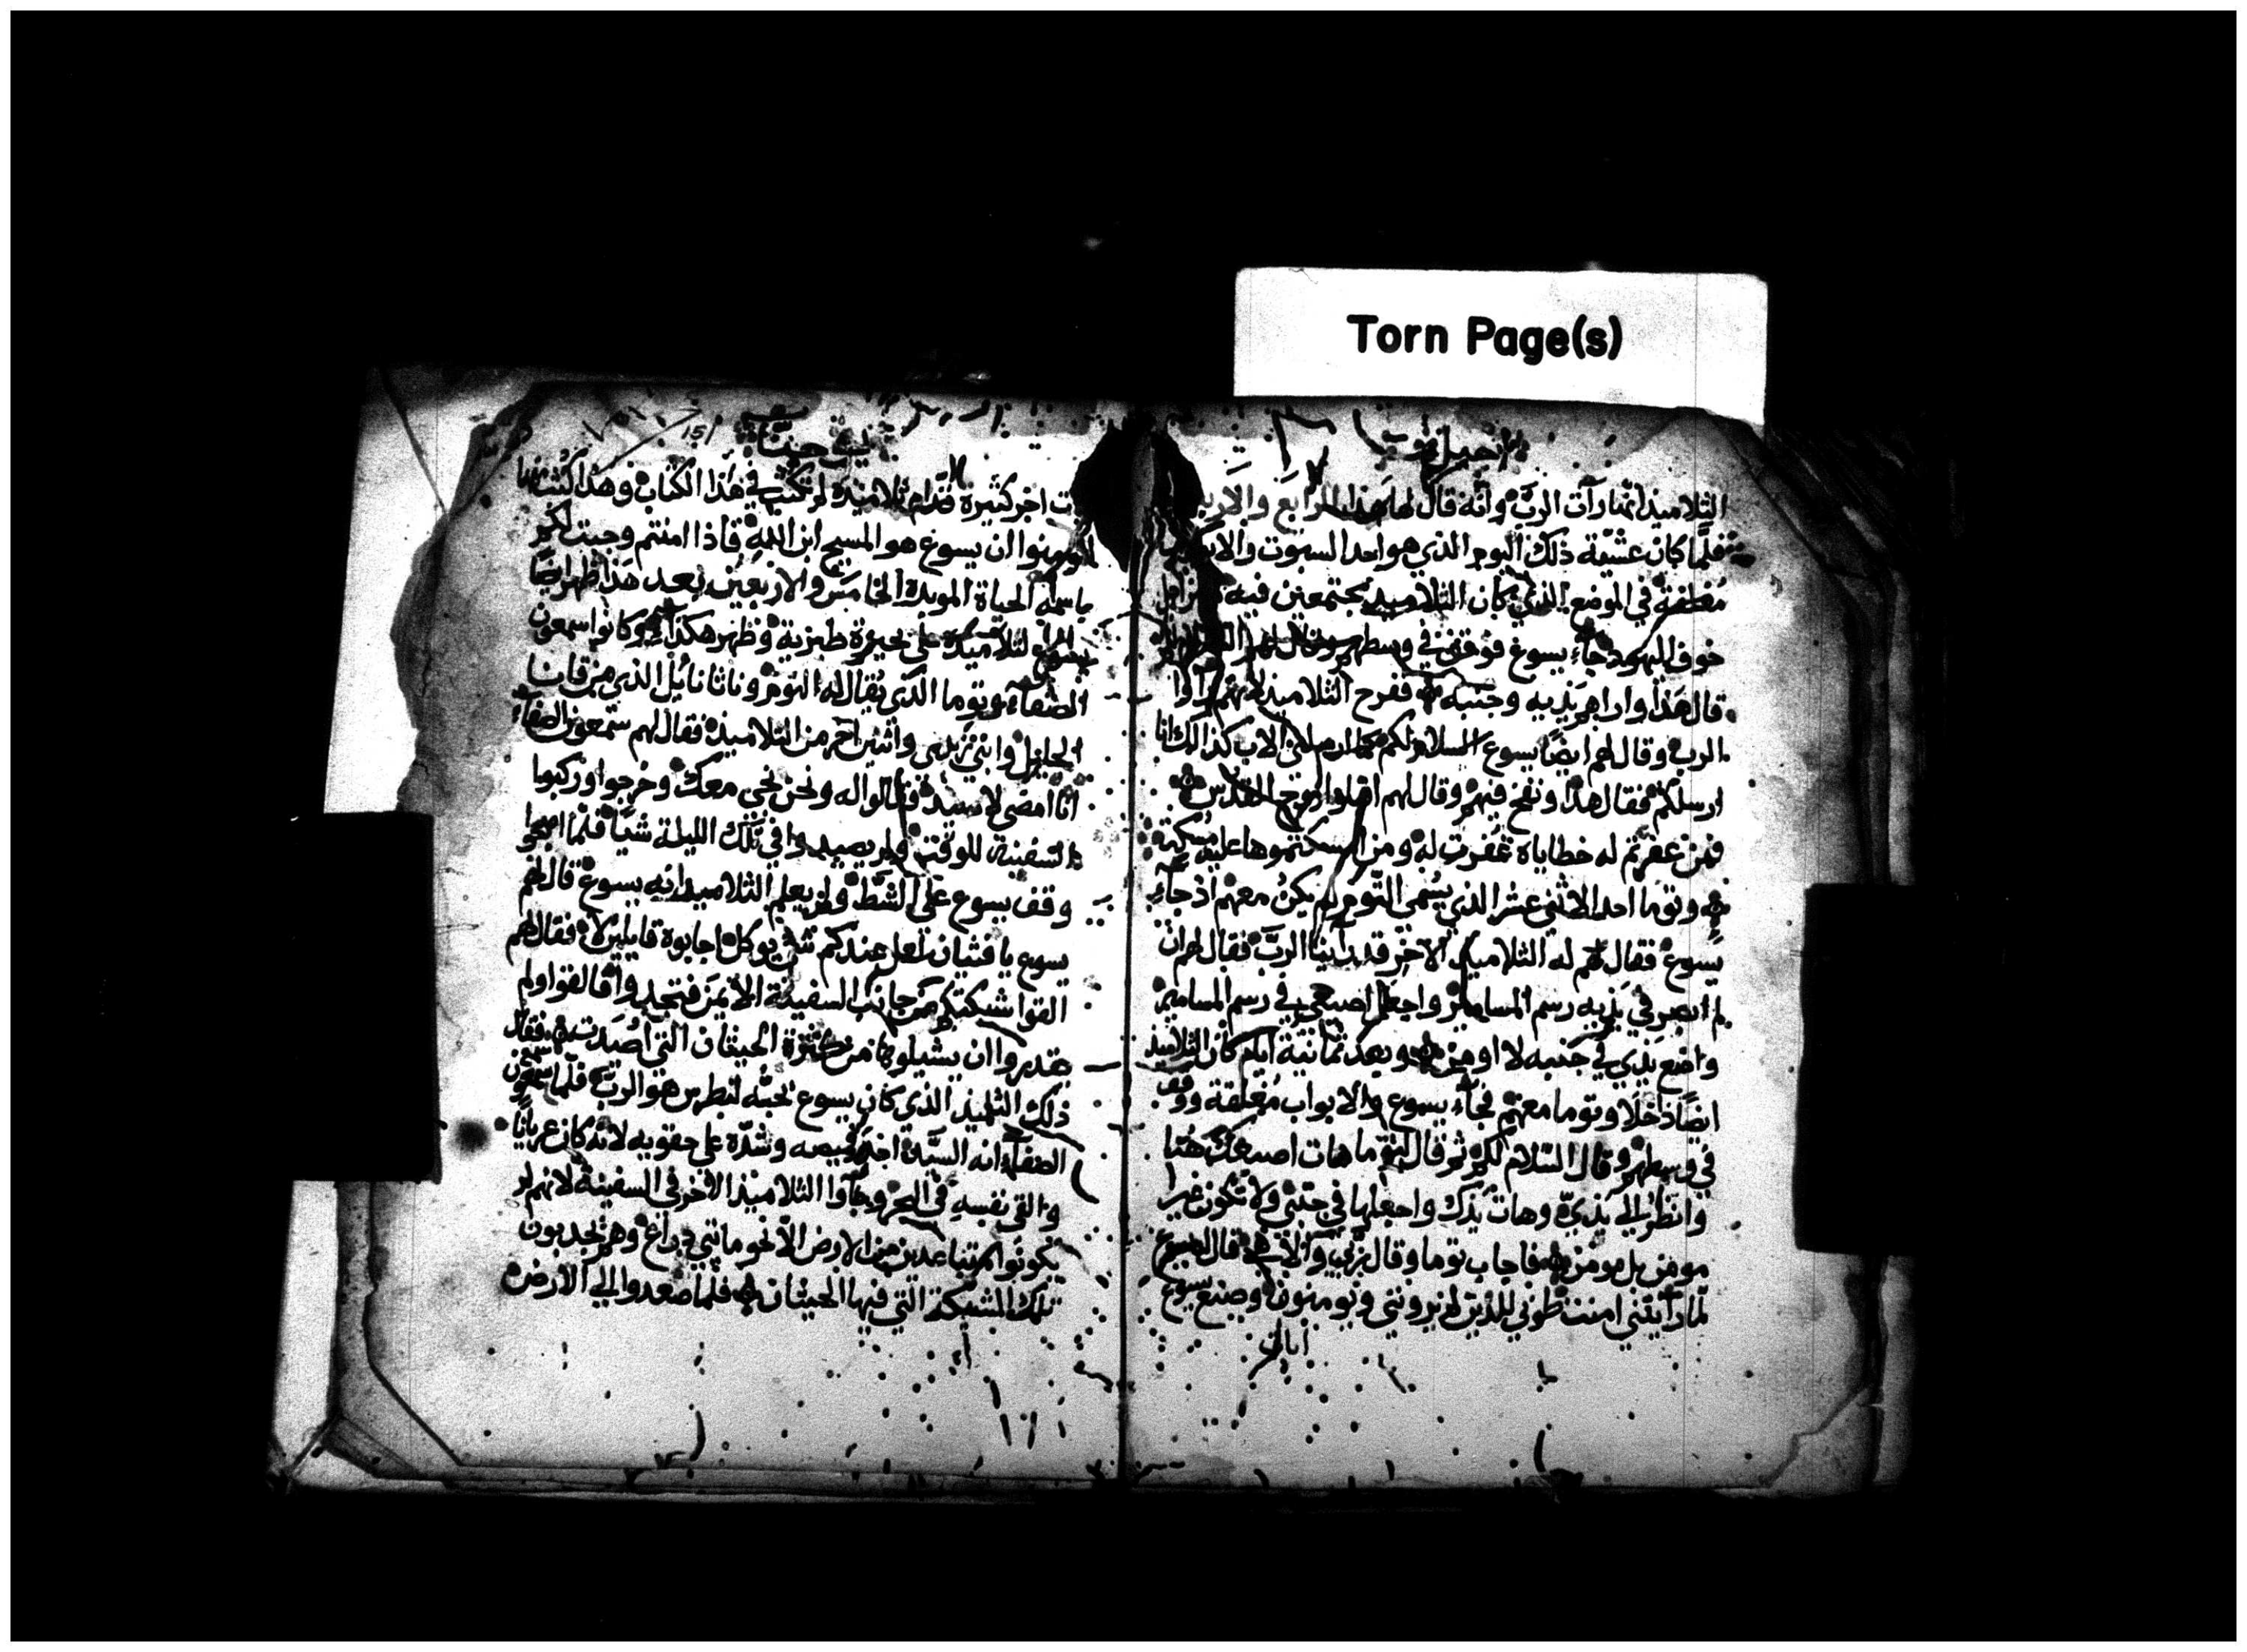 Torn Page(s)
انجيل
التلاميذ انها رات الربّ وانه قال لها هذا الرابع والار
فلما كان عشيّة ذلك اليوم الذي هو احد السبوت والابواب
مغلقة في الموضع الذي كان التلاميذ مجتمعين فيه من اجل
خوف اليهود جاء يسوع فوقف في وسطهم وقال لهم السلام لكم
قال هذا واراهم يديه وجنبه ففرح التلاميذ لانهم راوا
الرب وقال لهم ايضا يسوع السلام لكم كما ارسلني الاب كذالك انا
ارسلكم فقال هذا ونفخ فيهم وقال لهم اقبلوا روح القدس
فمن غفرتم له خطاياه غفرت له ومن امسكتموها عليه مسكت
وتوما احد الاثني عشر الذي يسمى التوم لم يكن معهم اذ جاء
يسوع فقال لهم له التلاميذ الاخر قد راينا الربّ فقال لهم ان
لم ابصر في يديه رسم المسامير واجعل اصبعي في رسم المسامير
واضع يدي في جنبه لا اومن وبعد ثمانية ايام كان التلاميذ
ايضا داخلا وتوما معهم فجاء يسوع والابواب مغلقة ووقف
في وسطهم وقال السلام لكم ثم قال لتوما هات اصبعك هنا
وانظر الى يديّ وهات يدك واجعلها في جنبي ولا تكون غير
مومن بل مومن فاجاب توما وقال ربي والاهي قال يسوع
لما رايتني امنت طوبى للذين لم يروني ويومنون وصنع يسوع
ايات
151
يوحنا
ات اخر كثيرة قدام تلاميذه لم تكتب في هذا الكتاب وهذا كتبت
لتومنوا ان يسوع هو المسيح ابن الله فاذا امنتم وجبت لكم
باسمه الحياة الموبدة الخامس والاربعين بعد هذا ظهر ايضا
يسوع لتلاميذه على بحيرة طبرية وظهر هكذا وكانوا سمعون
الصفا وتوما الذي يقال له التوم وناثانائيل الذي من قانا
الجليل وابني زبدى واثنين اخر من التلاميذ فقال لهم سمعون الصفا
انا امضي لاصيد فقالوا له ونحن نجي معك وخرجوا وركبوا
السفينة للوقت ولم يصيدوا في تلك الليلة شيّا فلما اصبحوا
وقف يسوع على الشط ولم يعلم التلاميذ انه يسوع قال لهم
يسوع يا فتيان لعل عندكم شي يوكل اجابوه قايلين لا فقال لهم
القوا شبكتكم من جانب السفينة الايمن فتجدوا فالقوا ولم
يقدروا ان يشيلوها من كثرة الحيتان التي اصيدت فقال
ذلك التلميذ الذي كان يسوع يحبه لبطرس هو الرب فلما سمع سمعون
الصفا انه السيّد اخذ قميصه وشدّه على حقويه لانه كان عريانا
والقى نفسه في البحر وجاوا التلاميذ الاخر في السفينة لانهم لم
يكونوا متباعدين من الارض الا نحو مايتي ذراع وهم يجدبون
تلك الشبكة التي فيها الحيتان فلما صعدوا الى الارض